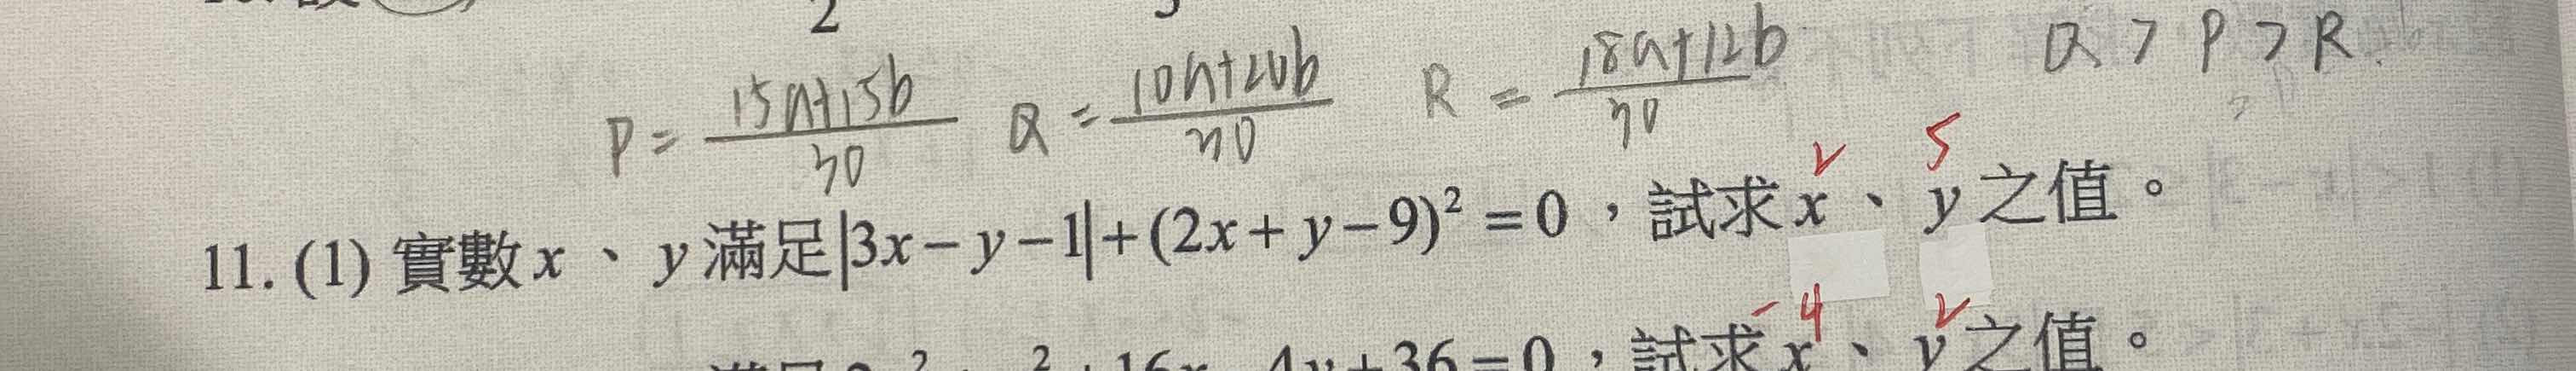 2
P = 15a+15b/30 Q = 10a+20b/30 R = 18a+12b/30 Q > P > R
2 5
11. (1) 實數 x 、 y 滿足 |3x − y − 1| + (2x + y − 9)² = 0 ,試求 x 、 y 之值。
-4 2
+ 36 = 0 ,試求 x 、 y 之值。